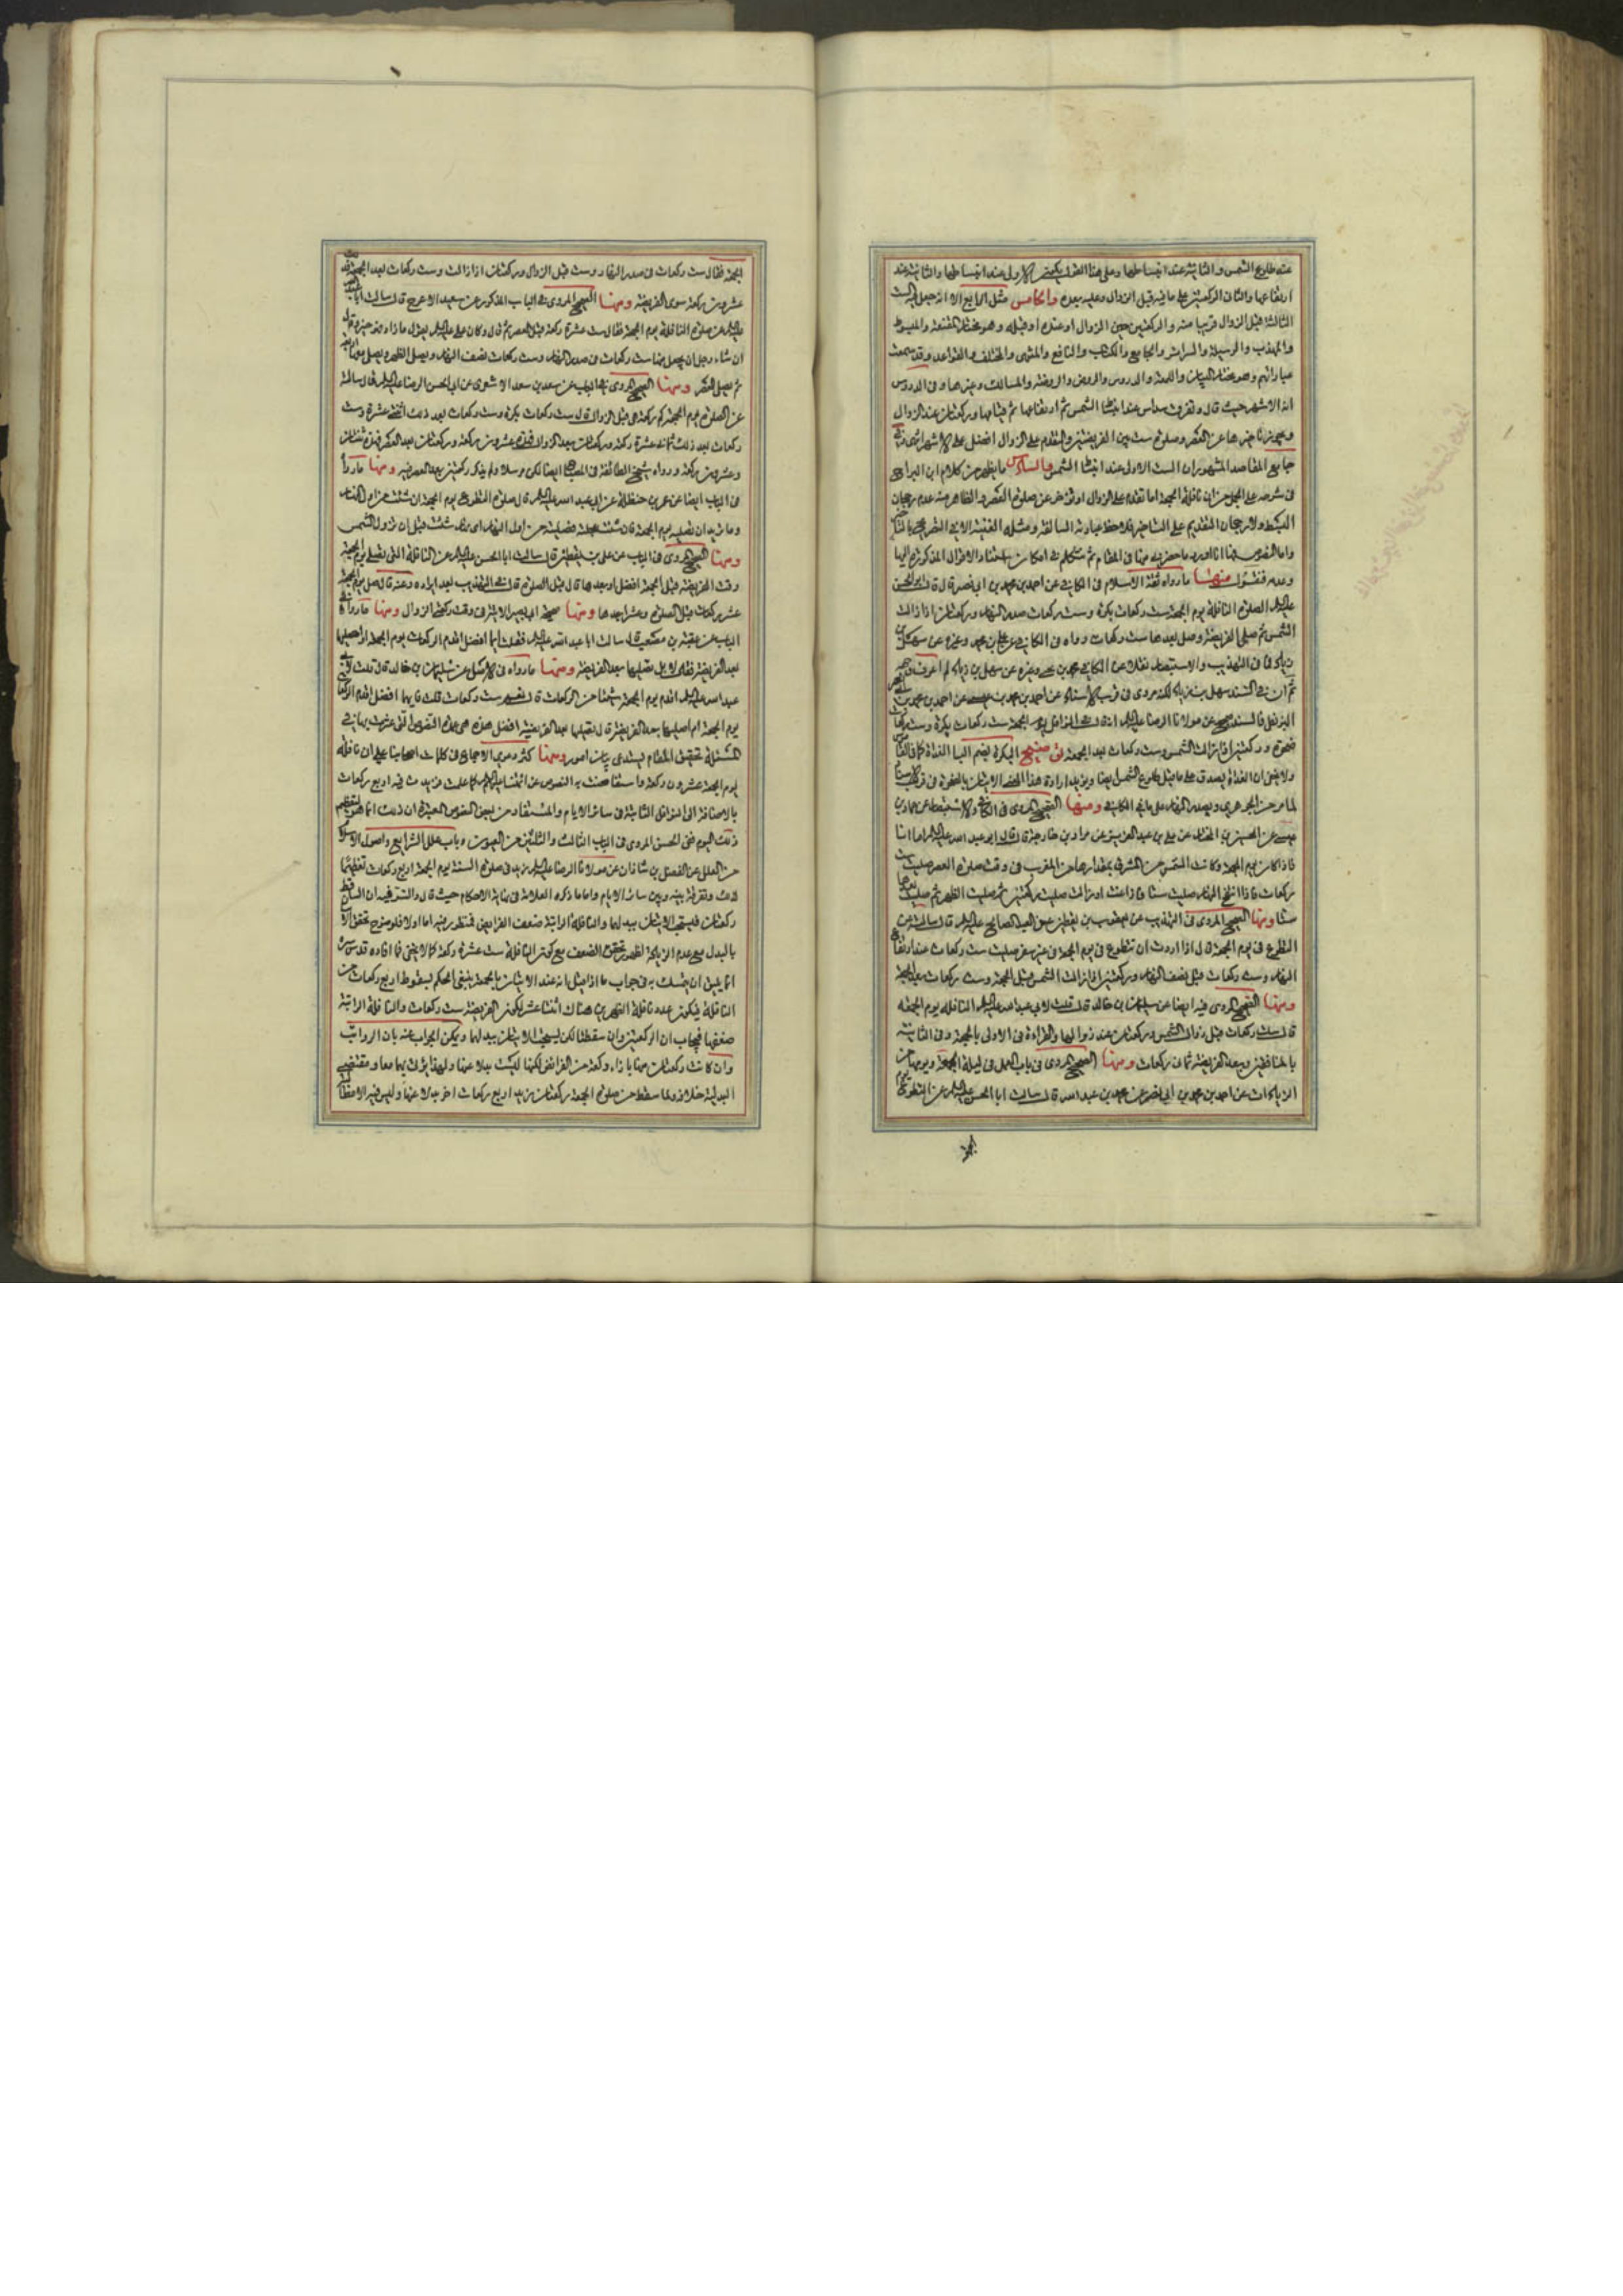 عند طلوع الشمس والثانية عند انبساطها وعلى هذا القول يكون الاولى عند انبساطها والثانية عند
ارتفاعها والثالث الركعتين على ما فيه قبل الزوال وعليه بعده والخامس مثل الرابع الا انه جعل الست
الثالثة قبل الزوال قريبا منه والركعتين حين الزوال او عنده او قبله وهو مختار المقنعة والمبسوط
والمهذب والوسيلة والسرائر والجامع والكتاب والنافع والمنتهى والمختلف والقواعد وقد سمعت
عباراتهم وهو مختار البيان واللمعة والدروس والروض والروضة والمسالك وغيرها وفى الدروس
انه الاشهر حيث قال وتفريقه سداس عند انبساط الشمس ثم ارتفاعها ثم قيامها وركعتان عند الزوال
ويجوز تاخيرها عن العصر وصلوة ست بين الفريضتين والتقدم على الزوال افضل على الاشهر انتهى وفى
جامع المقاصد المشهور ان الست الاولى عند انبساط الشمس والسادس ما يظهر من كلام ابن البراج
فى شرحه على الجمل من ان نافلة الجمعة اما تقدم على الزوال او تؤخر عن صلوة العصر والظاهر منه عدم رجحان
البسط ولا رجحان التقديم على التاخير فلاحظ عبارته السالفة ومثله
واما النصوص فانا اورد ما حضرنى منها فى المقام ثم نتكلم فى امكان استناد الاقوال المذكورة اليها
وعدمه فنقول منها ما رواه ثقة الاسلام فى الكافى عن احمد بن محمد بن ابى نصر قال قال ابو الحسن
عليه السلام الصلوة النافلة يوم الجمعة ست ركعات بكرة وست ركعات صدر النهار وركعتان اذا زالت
الشمس ثم صل الفريضة وصل بعدها ست ركعات رواه فى الكافى عن على بن محمد وغيره عن سهل بن
زياد وفى التهذيب والاستبصار نقلا عن الكافى محمد بن يحيى وغيره عن سهل بن زياد لم اعرف وجهه
ثم ان فى السند سهل بن زياد لكنه مروى فى قرب الاسناد عن احمد بن محمد بن عيسى عن احمد بن محمد بن
البزنطى فالسند صحيح عن مولانا الرضا عليه السلام انه قال فى النوافل يوم الجمعة ست ركعات بكرة وست ركعات
ضحوة وركعتين اذا زالت الشمس وست ركعات بعد الجمعة توضيح البكرة بضم الباء الغداة كما فى القاموس
ولا يخفى ان الغداة يصدق على ما قبل طلوع الشمس ايضا ويؤيد ارادة هذا
لما مر من الجوهرى وبصدر النهار على ما فى الكافى ومنها الصحيح المروى فى الكافى والاستبصار عن حماد بن
عيسى عن الحسين بن المختار عن على بن عبد العزيز عن مراد بن خارجة قال قال ابو عبد الله عليه السلام اما انا
فاذا كان يوم الجمعة وكانت الشمس من المشرق بمقدارها من المغرب فى وقت صلوة العصر صليت ست
ركعات فاذا انتفخ النهار صليت ستا فاذا زاغت او زالت صليت ركعتين ثم صليت الظهر ثم صليت بعدها
ستا ومنها الصحيح المروى فى التهذيب عن يعقوب بن يقطين عن العبد الصالح عليه السلام قال سالته عن
التطوع فى يوم الجمعة قال اذا اردت ان تتطوع فى يوم الجمعة فى غير سفر صليت ست ركعات عند ارتفاع
النهار وست ركعات قبل نصف النهار وركعتين اذا زالت الشمس قبل الجمعة وست ركعات بعد الجمعة
ومنها الصحيح المروى فيه ايضا عن سليمان بن خالد قال قلت لابى عبد الله عليه السلام النافلة يوم الجمعة
قال ست ركعات قبل زوال الشمس وركعتان عند زوالها والقراءة فى الاولى بالجمعة وفى الثانية
بالمنافقين وبعد الفريضة ثمان ركعات ومنها الصحيح المروى فى باب العمل فى ليلة الجمعة ويومها من
الزيادات عن احمد بن محمد بن ابى نصر عن محمد بن عبد الله قال سالت ابا الحسن عليه السلام عن التطوع يوم
الجمعة فقال ست ركعات فى صدر النهار وست قبل الزوال وركعتان اذا زالت وست ركعات بعد الجمعة فذلك
عشرون ركعة سوى الفريضة ومنها الصحيح المروى فى الباب المذكور عن سعيد الاعرج قال سالت ابا عبد الله
عليه السلام عن صلوة النافلة يوم الجمعة فقال ست عشرة ركعة قبل العصر ثم قال وكان على عليه السلام يقول ما زاد فهو خير وقال
ان شاء رجل ان يجعل منها ست ركعات فى صدر النهار وست ركعات نصف النهار ويصلى الظهر ويصلى معها اربعة
ثم يصلى العصر ومنها الصحيح المروى فى الباب عن سعد بن سعد الاشعرى عن ابى الحسن الرضا عليه السلام قال سالته
عن الصلوة يوم الجمعة كم ركعة هى قبل الزوال قال ست ركعات بكرة وست ركعات بعد ذلك اثنتى عشرة وست
ركعات بعد ذلك ثمانى عشرة ركعة وركعتان بعد الزوال فهذه عشرون ركعة وركعتان بعد العصر فهذه ثنتان
وعشرون ركعة ورواه شيخ الطائفة فى المصباح ايضا لكن مرسلا ولم يذكر ركعتين بعد العصر فيه ومنها ما رواه
فى الباب ايضا عن عمر بن حنظلة عن ابى عبد الله عليه السلام قال صلوة التطوع يوم الجمعة ان شئت من اول النهار
وما تريد ان تصليه يوم الجمعة فان شئت عجلته فصليته من اول النهار اى النهار شئت قبل ان تزول الشمس
ومنها الصحيح المروى فى الباب عن على بن يقطين قال سالت ابا الحسن عليه السلام عن النافلة التى تصلى يوم الجمعة
وقت الفريضة قبل الجمعة افضل او بعدها قال قبل الصلوة قال فى التهذيب بعد ايراده وعنه قال صل يوم الجمعة
عشر ركعات قبل الصلوة وعشرا بعدها ومنها صحيحة ابى بصير الاتية فى وقت ركعتى الزوال ومنها ما رواه فى
الباب عن عقبة بن مصعب قال سالت ابا عبد الله عليه السلام فقلت ايما افضل اقدم الركعات يوم الجمعة او اصليها
بعد الفريضة فقال لا بل تصليها بعد الفريضة ومنها ما رواه فى الاصل عن سليمان بن خالد قال قلت لابى
عبد الله عليه السلام اقدم يوم الجمعة شيئا من الركعات قال نعم ست ركعات قلت فايهما افضل اقدم الركعات
يوم الجمعة ام اصليها بعد الفريضة قال تصليها بعد الفريضة افضل هذه هى عمدة النصوص التى عثرت بها فى
المسئلة تحقيق المقام يستدعى بيان امور ومنها كثر دعوى الاجماع فى كلمات اصحابنا على ان نافلة
يوم الجمعة عشرون ركعة واستفاضت به النصوص عن ائمتنا عليهم السلام كما علمت فزيدت فيه اربع ركعات
بالاضافة الى النوافل الثابتة فى سائر الايام والمستفاد من بعض النصوص المعتبرة ان ذلك انما هو لتعظيم
ذلك اليوم ففى الحسن المروى فى الباب الثالث والثلثين من العيون وباب علل الشرايع واصول الاسلام
من العلل عن الفضل بن شاذان عن مولانا الرضا عليه السلام زيد فى صلوة السنة يوم الجمعة اربع ركعات تعظيما
لذلك وتفرقة بينه وبين سائر الايام واما ما ذكره العلامة فى نهاية الاحكام حيث قال والسر فيه ان الساقط
ركعتان فيستحب الاتيان ببدلهما والنافلة الراتبة ضعف الفرايض فمنظور فيه اما اولا فلوضوح تحقق الاتيان
بالبدل مع عدم الزيادة لظهور تحقق الضعف مع كون النافلة ست عشرة ركعة كما لا يخفى فما افاده قدس سره
انما يليق ان يتمسك به فى جواب ما اذا قيل انه عند الاتيان بالجمعة ينبغى الحكم بسقوط اربع ركعات من
النافلة فيكون عدد نافلة الظهرين هناك اثنتا عشر لكون الفريضة ست ركعات والنافلة الراتبة
ضعفها فيجاب ان الركعتين وان سقطتا لكن يستحب الاتيان ببدلهما ويمكن الجواب عنه بان الرواتب
وان كانت ركعتان منها بازاء ركعة من الفرائض لكنها ليست بدلا عنها ولهذا يؤتى بهما معا ومقتضى
البدلية خلافه ولما سقط من صلوة الجمعة ركعتان زيد اربع ركعات اخر بدلا عنها وليس فيه الا